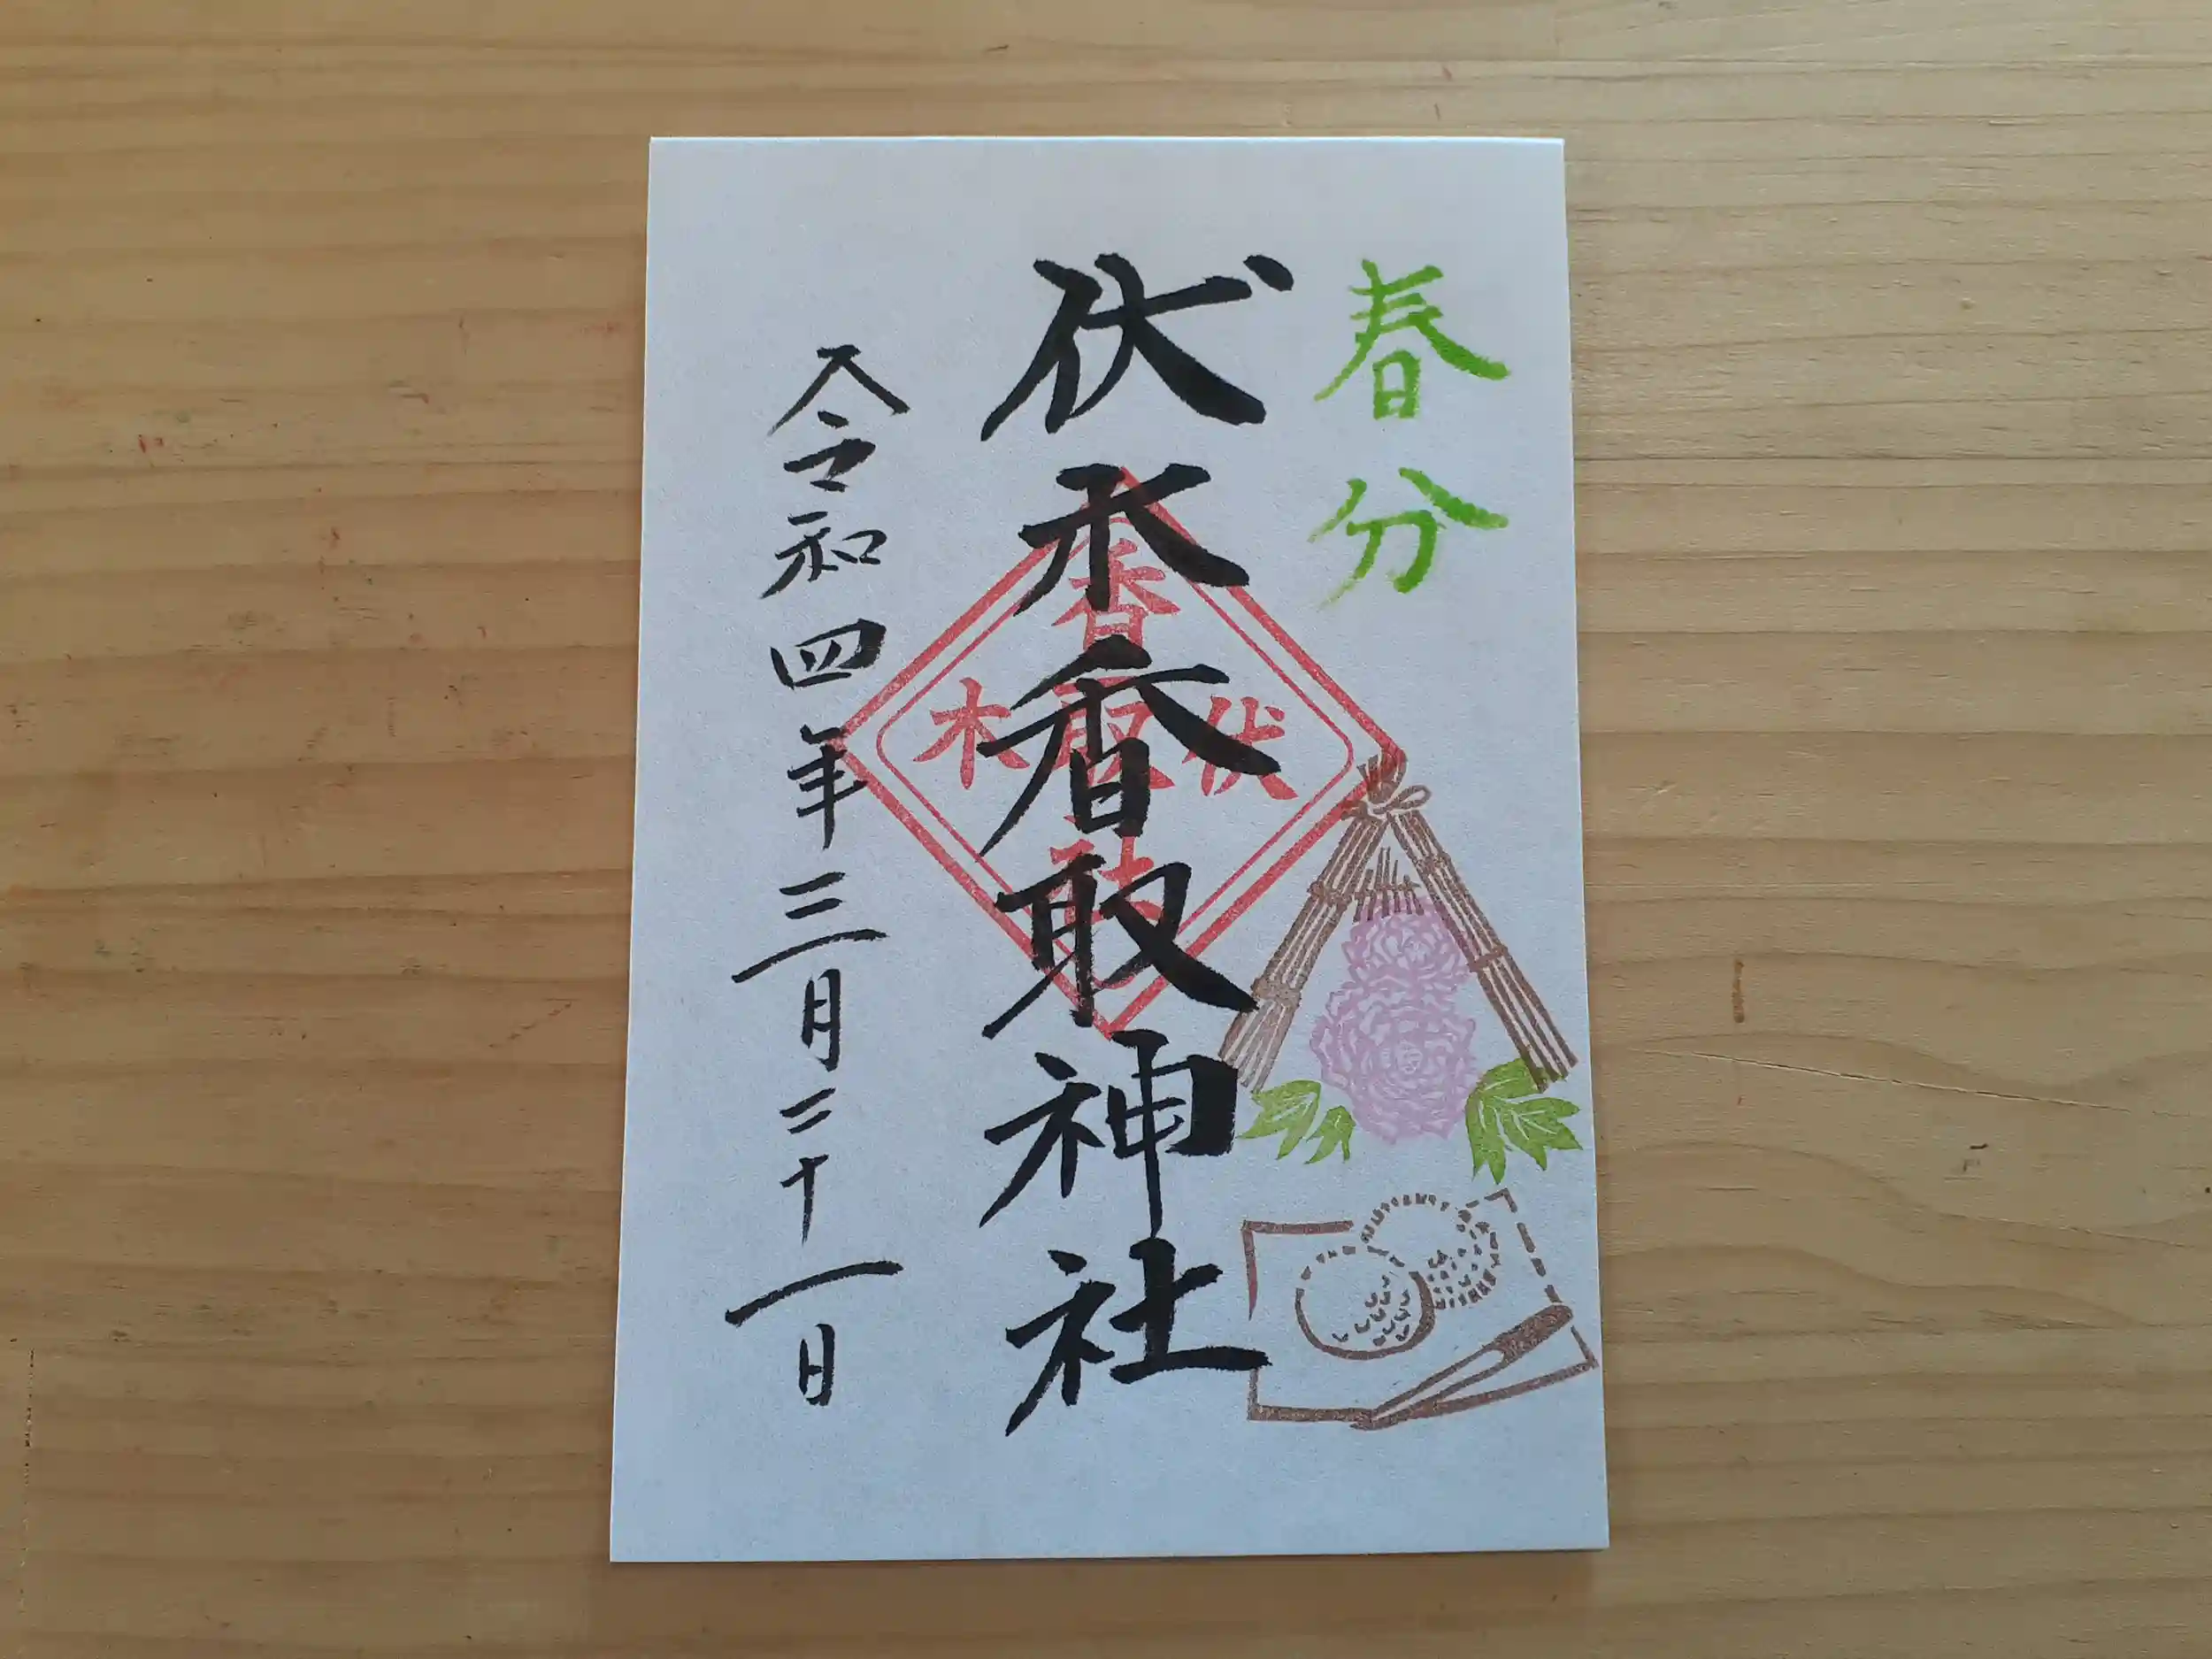 春分
伏木香取神社
香
伏取木
社
令和四年三月二十一日